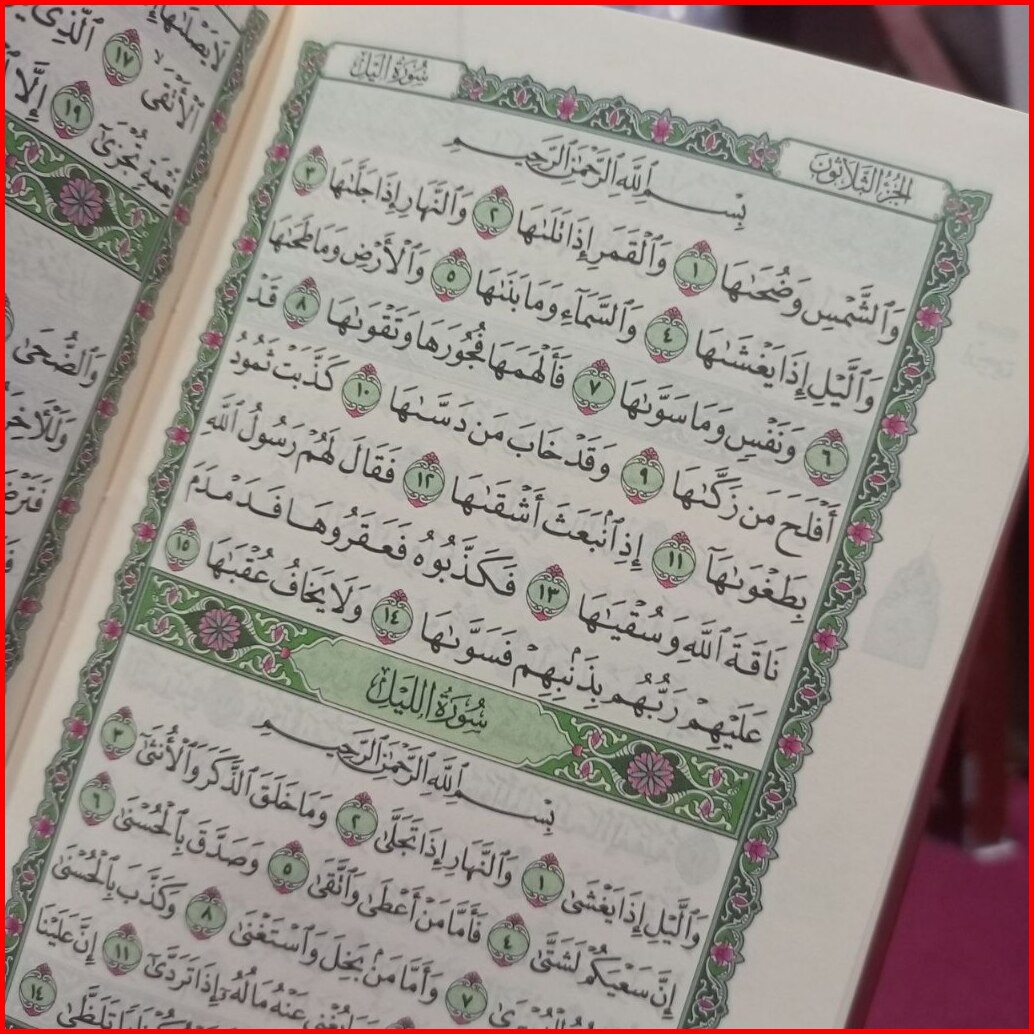 سُورَةُ اللَّيْلِ
الجُزْءُ الثَّلَاثُونَ
بِسْمِ ٱللَّهِ ٱلرَّحْمَٰنِ ٱلرَّحِيمِ
وَٱلشَّمْسِ وَضُحَىٰهَا ١ وَٱلْقَمَرِ إِذَا تَلَىٰهَا ٢ وَٱلنَّهَارِ إِذَا جَلَّىٰهَا ٣
وَٱلَّيْلِ إِذَا يَغْشَىٰهَا ٤ وَٱلسَّمَآءِ وَمَا بَنَىٰهَا ٥ وَٱلْأَرْضِ وَمَا طَحَىٰهَا
٦ وَنَفْسٍ وَمَا سَوَّىٰهَا ٧ فَأَلْهَمَهَا فُجُورَهَا وَتَقْوَىٰهَا ٨ قَدْ
أَفْلَحَ مَن زَكَّىٰهَا ٩ وَقَدْ خَابَ مَن دَسَّىٰهَا ١٠ كَذَّبَتْ ثَمُودُ
بِطَغْوَىٰهَآ ١١ إِذِ ٱنۢبَعَثَ أَشْقَىٰهَا ١٢ فَقَالَ لَهُمْ رَسُولُ ٱللَّهِ
نَاقَةَ ٱللَّهِ وَسُقْيَٰهَا ١٣ فَكَذَّبُوهُ فَعَقَرُوهَا فَدَمْدَمَ
عَلَيْهِمْ رَبُّهُم بِذَنۢبِهِمْ فَسَوَّىٰهَا ١٤ وَلَا يَخَافُ عُقْبَٰهَا ١٥
سُورَةُ اللَّيْلِ
بِسْمِ ٱللَّهِ ٱلرَّحْمَٰنِ ٱلرَّحِيمِ
وَٱلَّيْلِ إِذَا يَغْشَىٰ ١ وَٱلنَّهَارِ إِذَا تَجَلَّىٰ ٢ وَمَا خَلَقَ ٱلذَّكَرَ وَٱلْأُنثَىٰٓ ٣
إِنَّ سَعْيَكُمْ لَشَتَّىٰ ٤ فَأَمَّا مَنْ أَعْطَىٰ وَٱتَّقَىٰ ٥ وَصَدَّقَ بِٱلْحُسْنَىٰ ٦
٧ وَأَمَّا مَنۢ بَخِلَ وَٱسْتَغْنَىٰ ٨ وَكَذَّبَ بِٱلْحُسْنَىٰ
عَنْهُ مَالُهُۥٓ إِذَا تَرَدَّىٰٓ ١١ إِنَّ عَلَيْنَا
تَلَظَّىٰ ١٤
لَا يَصْلَىٰهَآ
ٱلْأَتْقَى ١٧ ٱلَّذِى
نِّعْمَةٍ تُجْزَىٰٓ ١٩ إِلَّا
وَٱلضُّحَىٰ